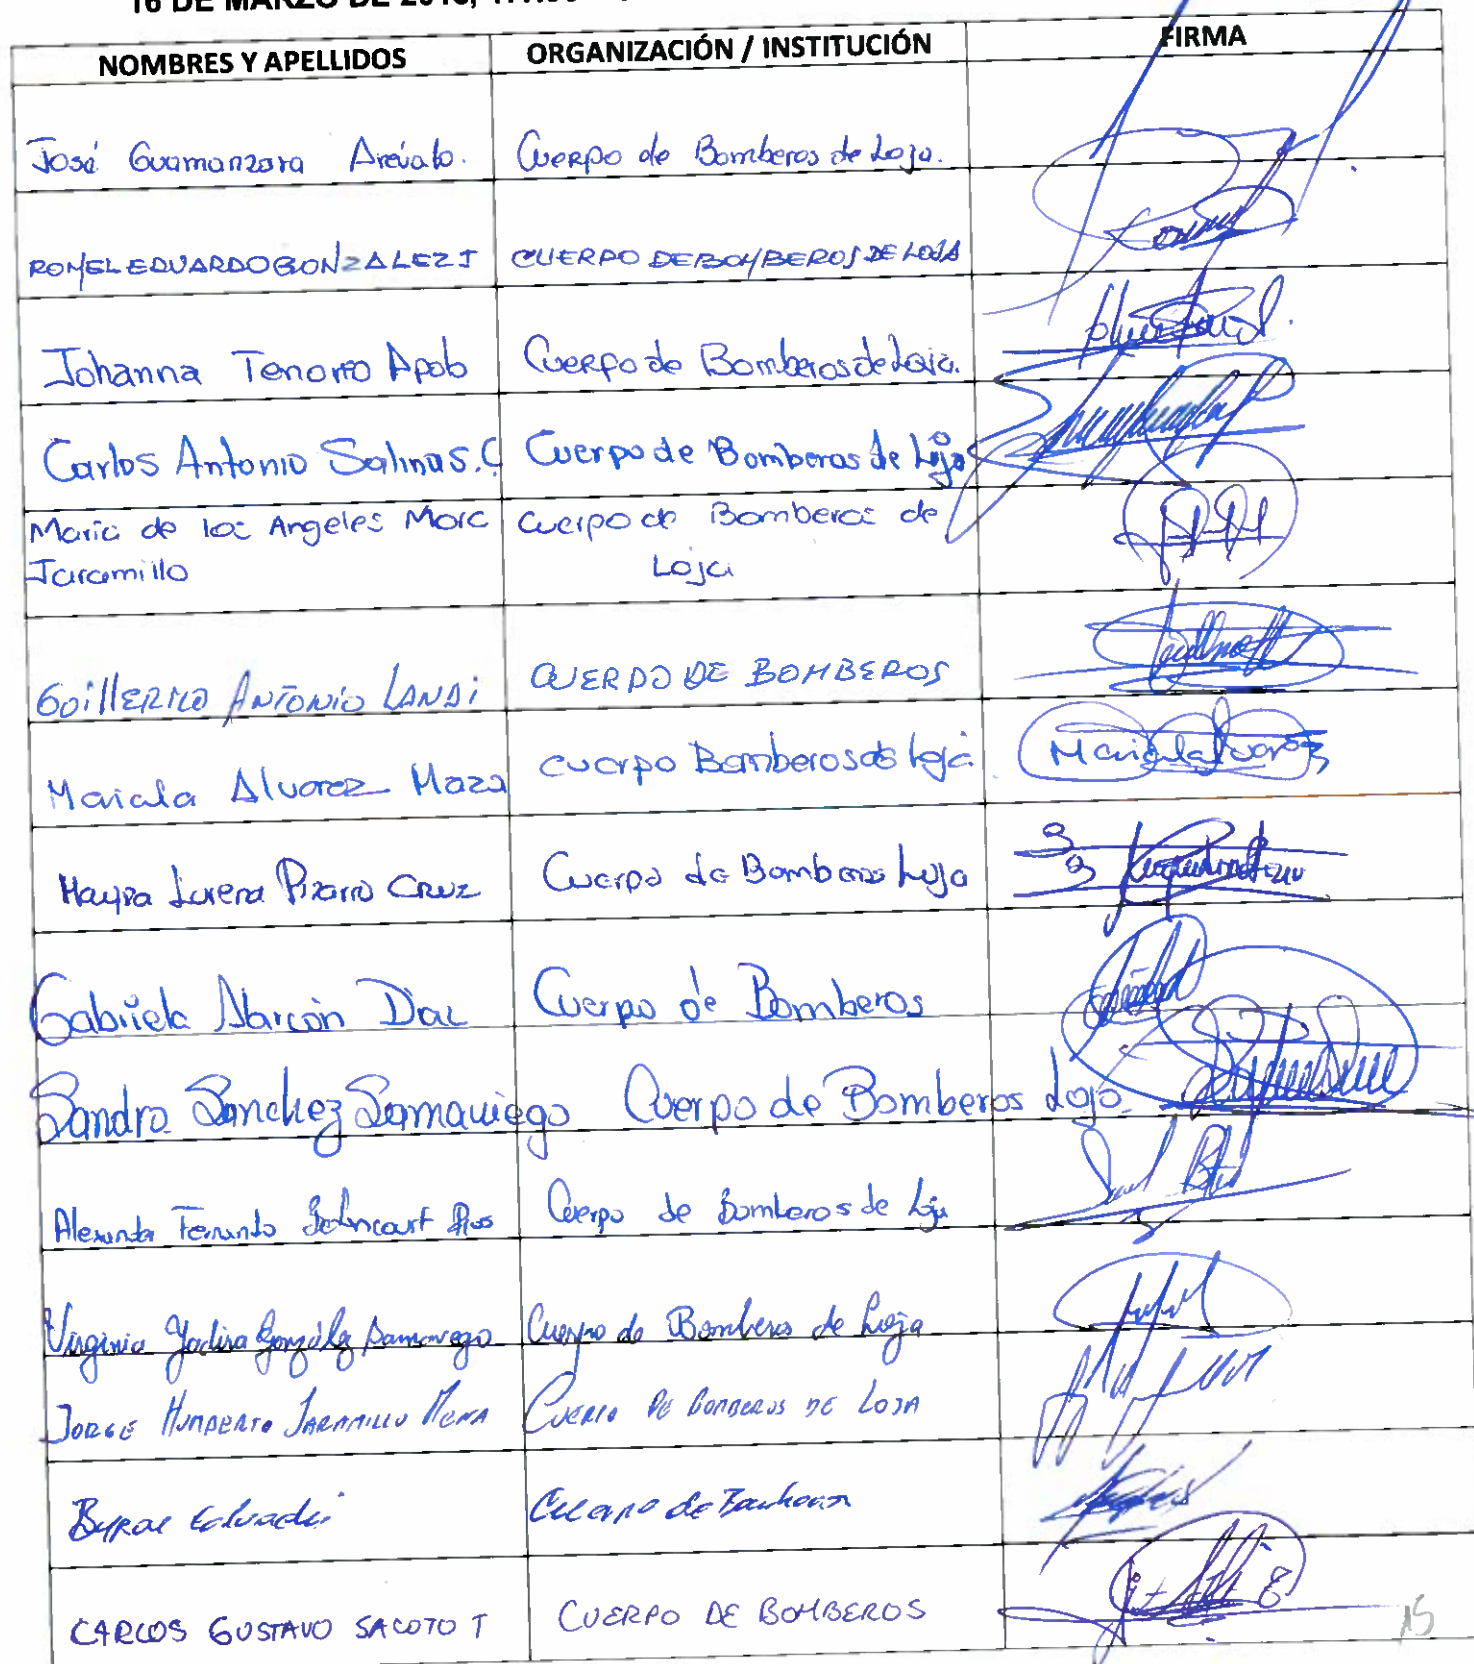 16 DE MARZO DE
NOMBRES Y APELLIDOS ORGANIZACIÓN / INSTITUCIÓN FIRMA
José Guamanzara Arévalo. Cuerpo de Bomberos de Loja.
ROMEL EDUARDO GONZALEZ J CUERPO DE BOMBEROS DE LOJA
Johanna Tenorio Apolo Cuerpo de Bomberos de Loja.
Carlos Antonio Salinas.C Cuerpo de Bomberos de Loja
Maria de los Angeles Mora Cuerpo de Bomberos de
Jaramillo Loja
GUillERMO ANTONIO LANDi CUERPO DE BOMBEROS
Mariela Alvarez Maza cuerpo Bomberos de Loja Mariela Alvarez
Mayra Lorena Pizarro Cruz Cuerpo de Bomberos Loja
Gabriela Alarcón Díaz Cuerpo de Bomberos
Sandra Sánchez Samaniego Cuerpo de Bomberos Loja.
Fernando Betancourt Cuerpo de Bomberos de Loja
Virginia Yadira González Samaniego Cuerpo de Bomberos de Loja
JORGE HUMBERTO JARAMILLO MENA CUERPO DE BOMBEROS DE LOJA
Cuerpo de
CARLOS GUSTAVO SACOTO T CUERPO DE BOMBEROS
15